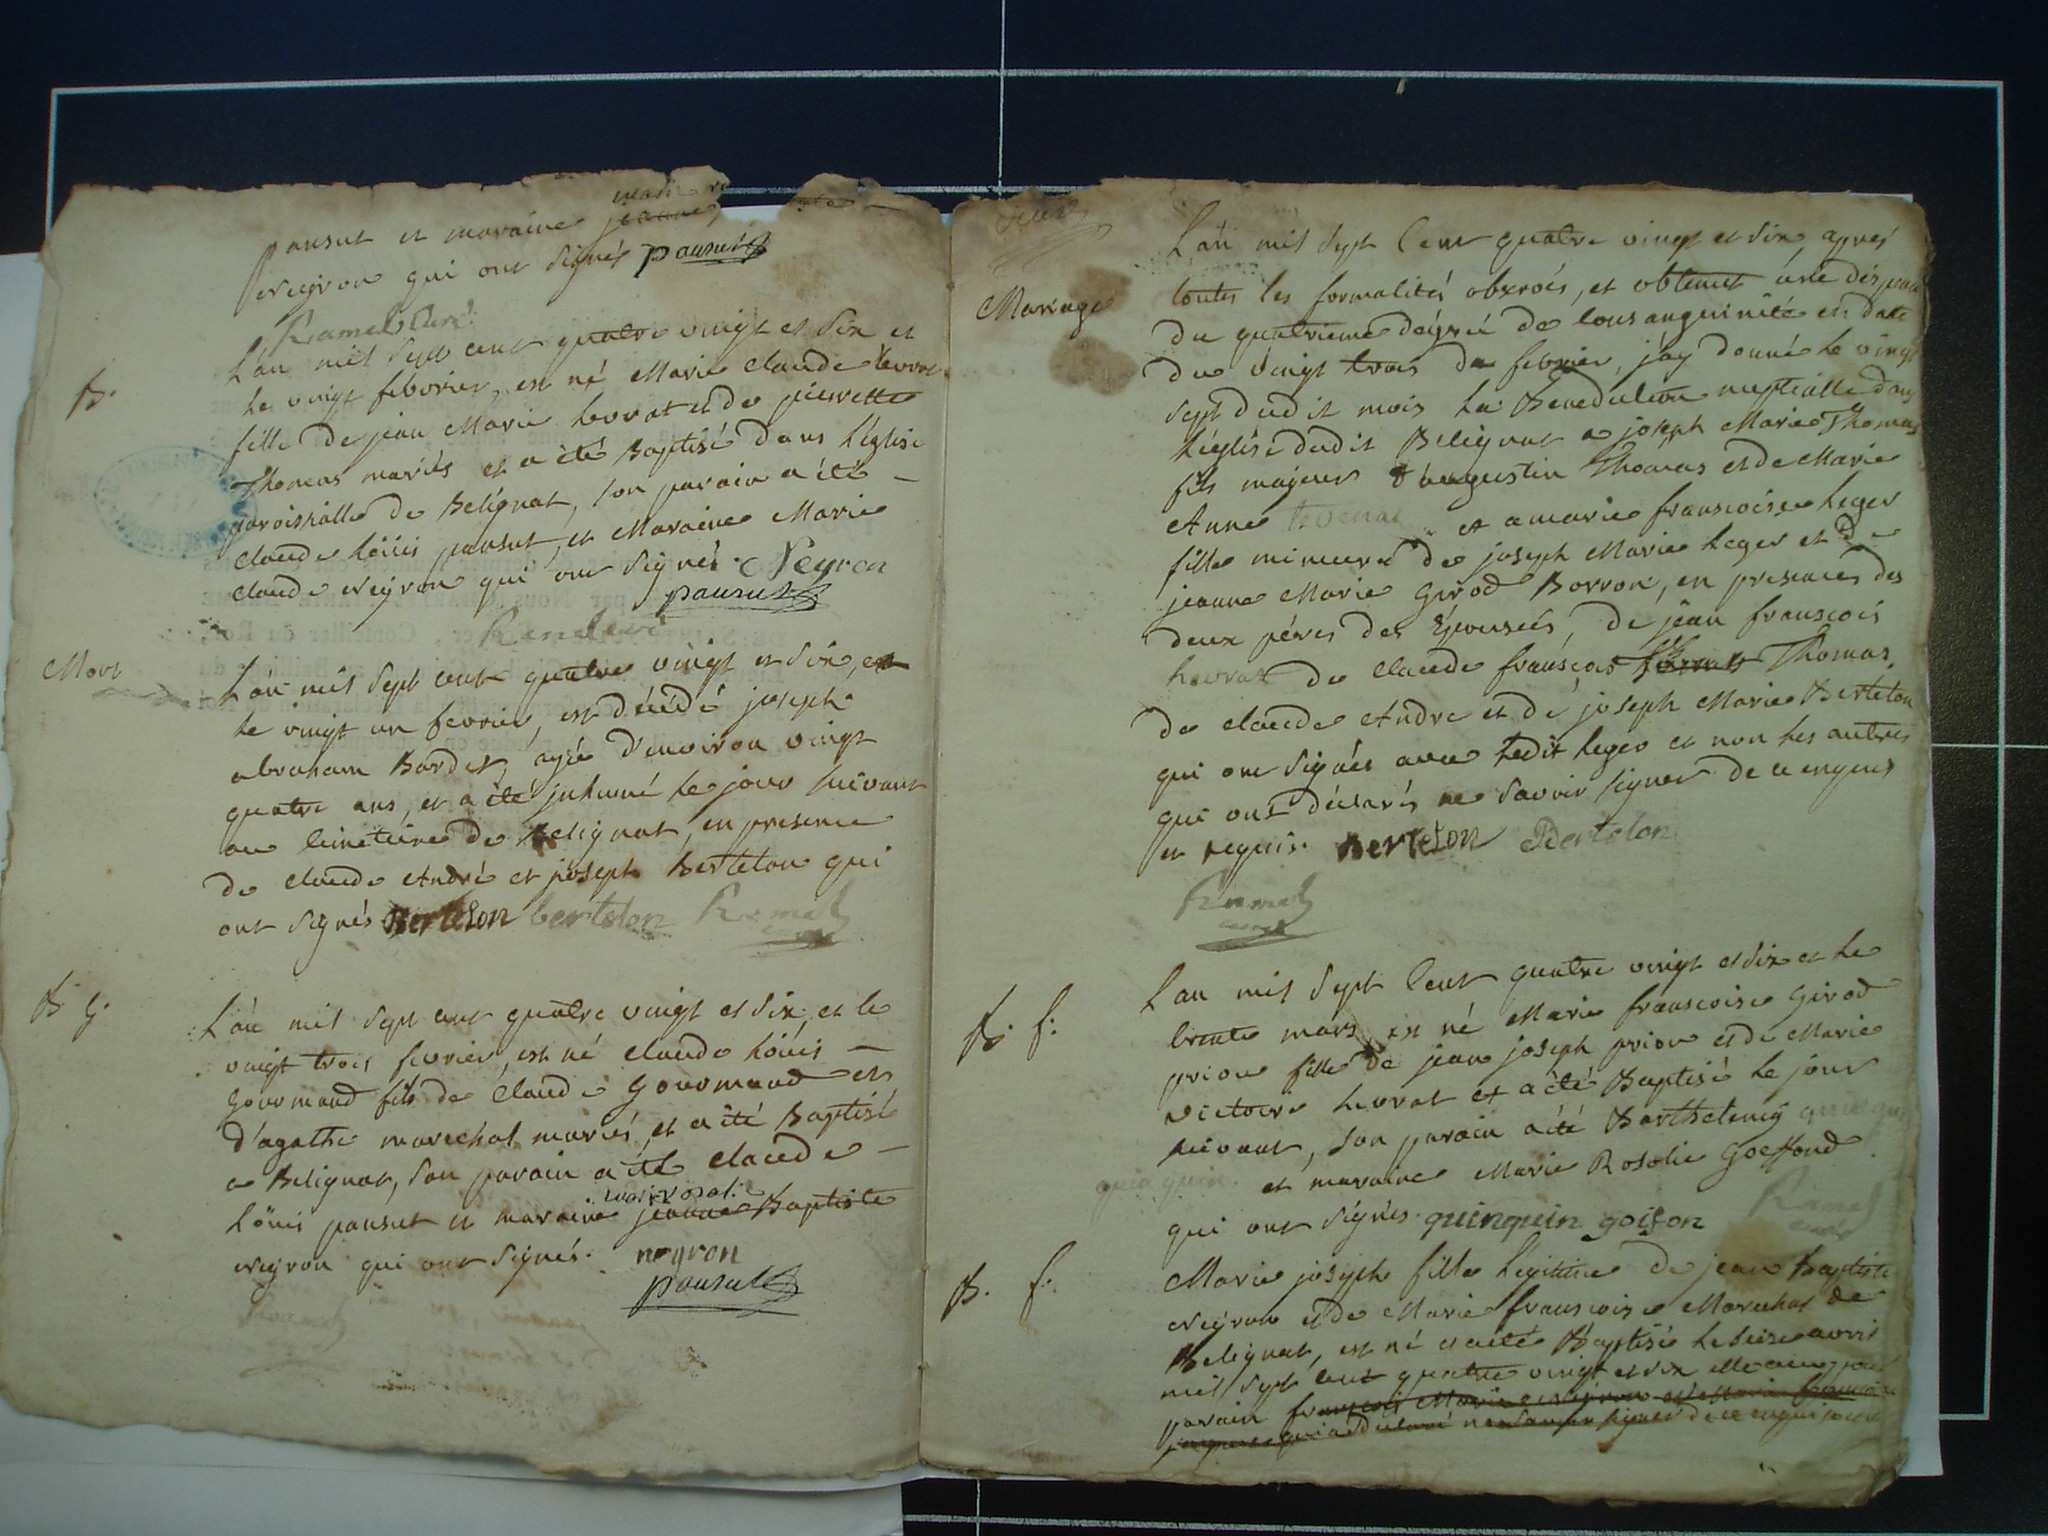 pansut et maraine jeanne
neyron qui ont signés pansut
Ramel curé
B.
L'an mil sept cent quatre vingt et six et
le vingt febvrier, est né Marie claude levrat
fille de jean Marie levrat et de pierrette
Thomas mariés et a été Baptisé dans l'église
paroissialle de Belignat, son parain a été
claude löuis pansut, et Maraine Marie
claude neyron qui ont signés. Neyron
pansut
Mort
L'an mil sept cent quatre vingt et six, et
le vingt un fevrier, est décédé joseph
abraham Bardet, agée d'environ vingt
quatre ans, et a été inhumé le jour suivant
au cimetiere de Belignat, en presence
de claude André et joseph Bertelon qui
ont signés Bertelon bertelon Ramel
curé
B g.
L'an mil sept cent quatre vingt et six, et le
vingt trois fevrier, est né claude löuis
Gourmand fils de claude Gourmand et
d'agathe marechal mariés, et a été Baptisé
a Belignat, son parain a été claude
marie rosalie
löuis pansut et maraine jeanne Baptiste
neyron qui ont signés. neyron
pansut
Mariage
L'an mil sept cent quatre vingt et six, apres
toutes les formalités obserés, et obtenut une dispan
du quatrieme degrée de consanguinité en date
du vingt trois de febrier, j'ay donné le vingt
sept dudit mois la Benediction nuptialle dans
l'église dudit Belignat a joseph Marie Thomas
fils majeur d'augustin Thomas et de Marie
Anne et a marie francoise leger
fille mineure de joseph Marie leger et de
jeanne Marie Girod Borron, en presences des
deux péres des Epouseés, de jean francois
levrat de claude francois Thomas,
de claude Andre et de joseph Marie Bertelon
qui ont signés avec ledit leger et non les autres
qui ont déclarés ne savoir signer de ce enquis
et requis. Bertelon Bertelon
Ramel
curé
B. f.
L'an mil sept cent quatre vingt et six et le
trente mars est né Marie francoise Girod
prion fille de jean joseph prion et de Marie
victoire levrat et a été Baptisé le jour
suivant, son parain a été Barthelemy
et maraine Marie Rosalie Goeffond
qui ont signés. quinquin goifon Ramel
curé
B. f.
Marie joseph fille légitime de jean Baptiste
neyron et de Marie francoise Marechal de
Belignat, est né et a été Baptisé le seize avril
mil sept cent quatre vingt et six elle a eu pour
parain francois Marie neyron et Marie